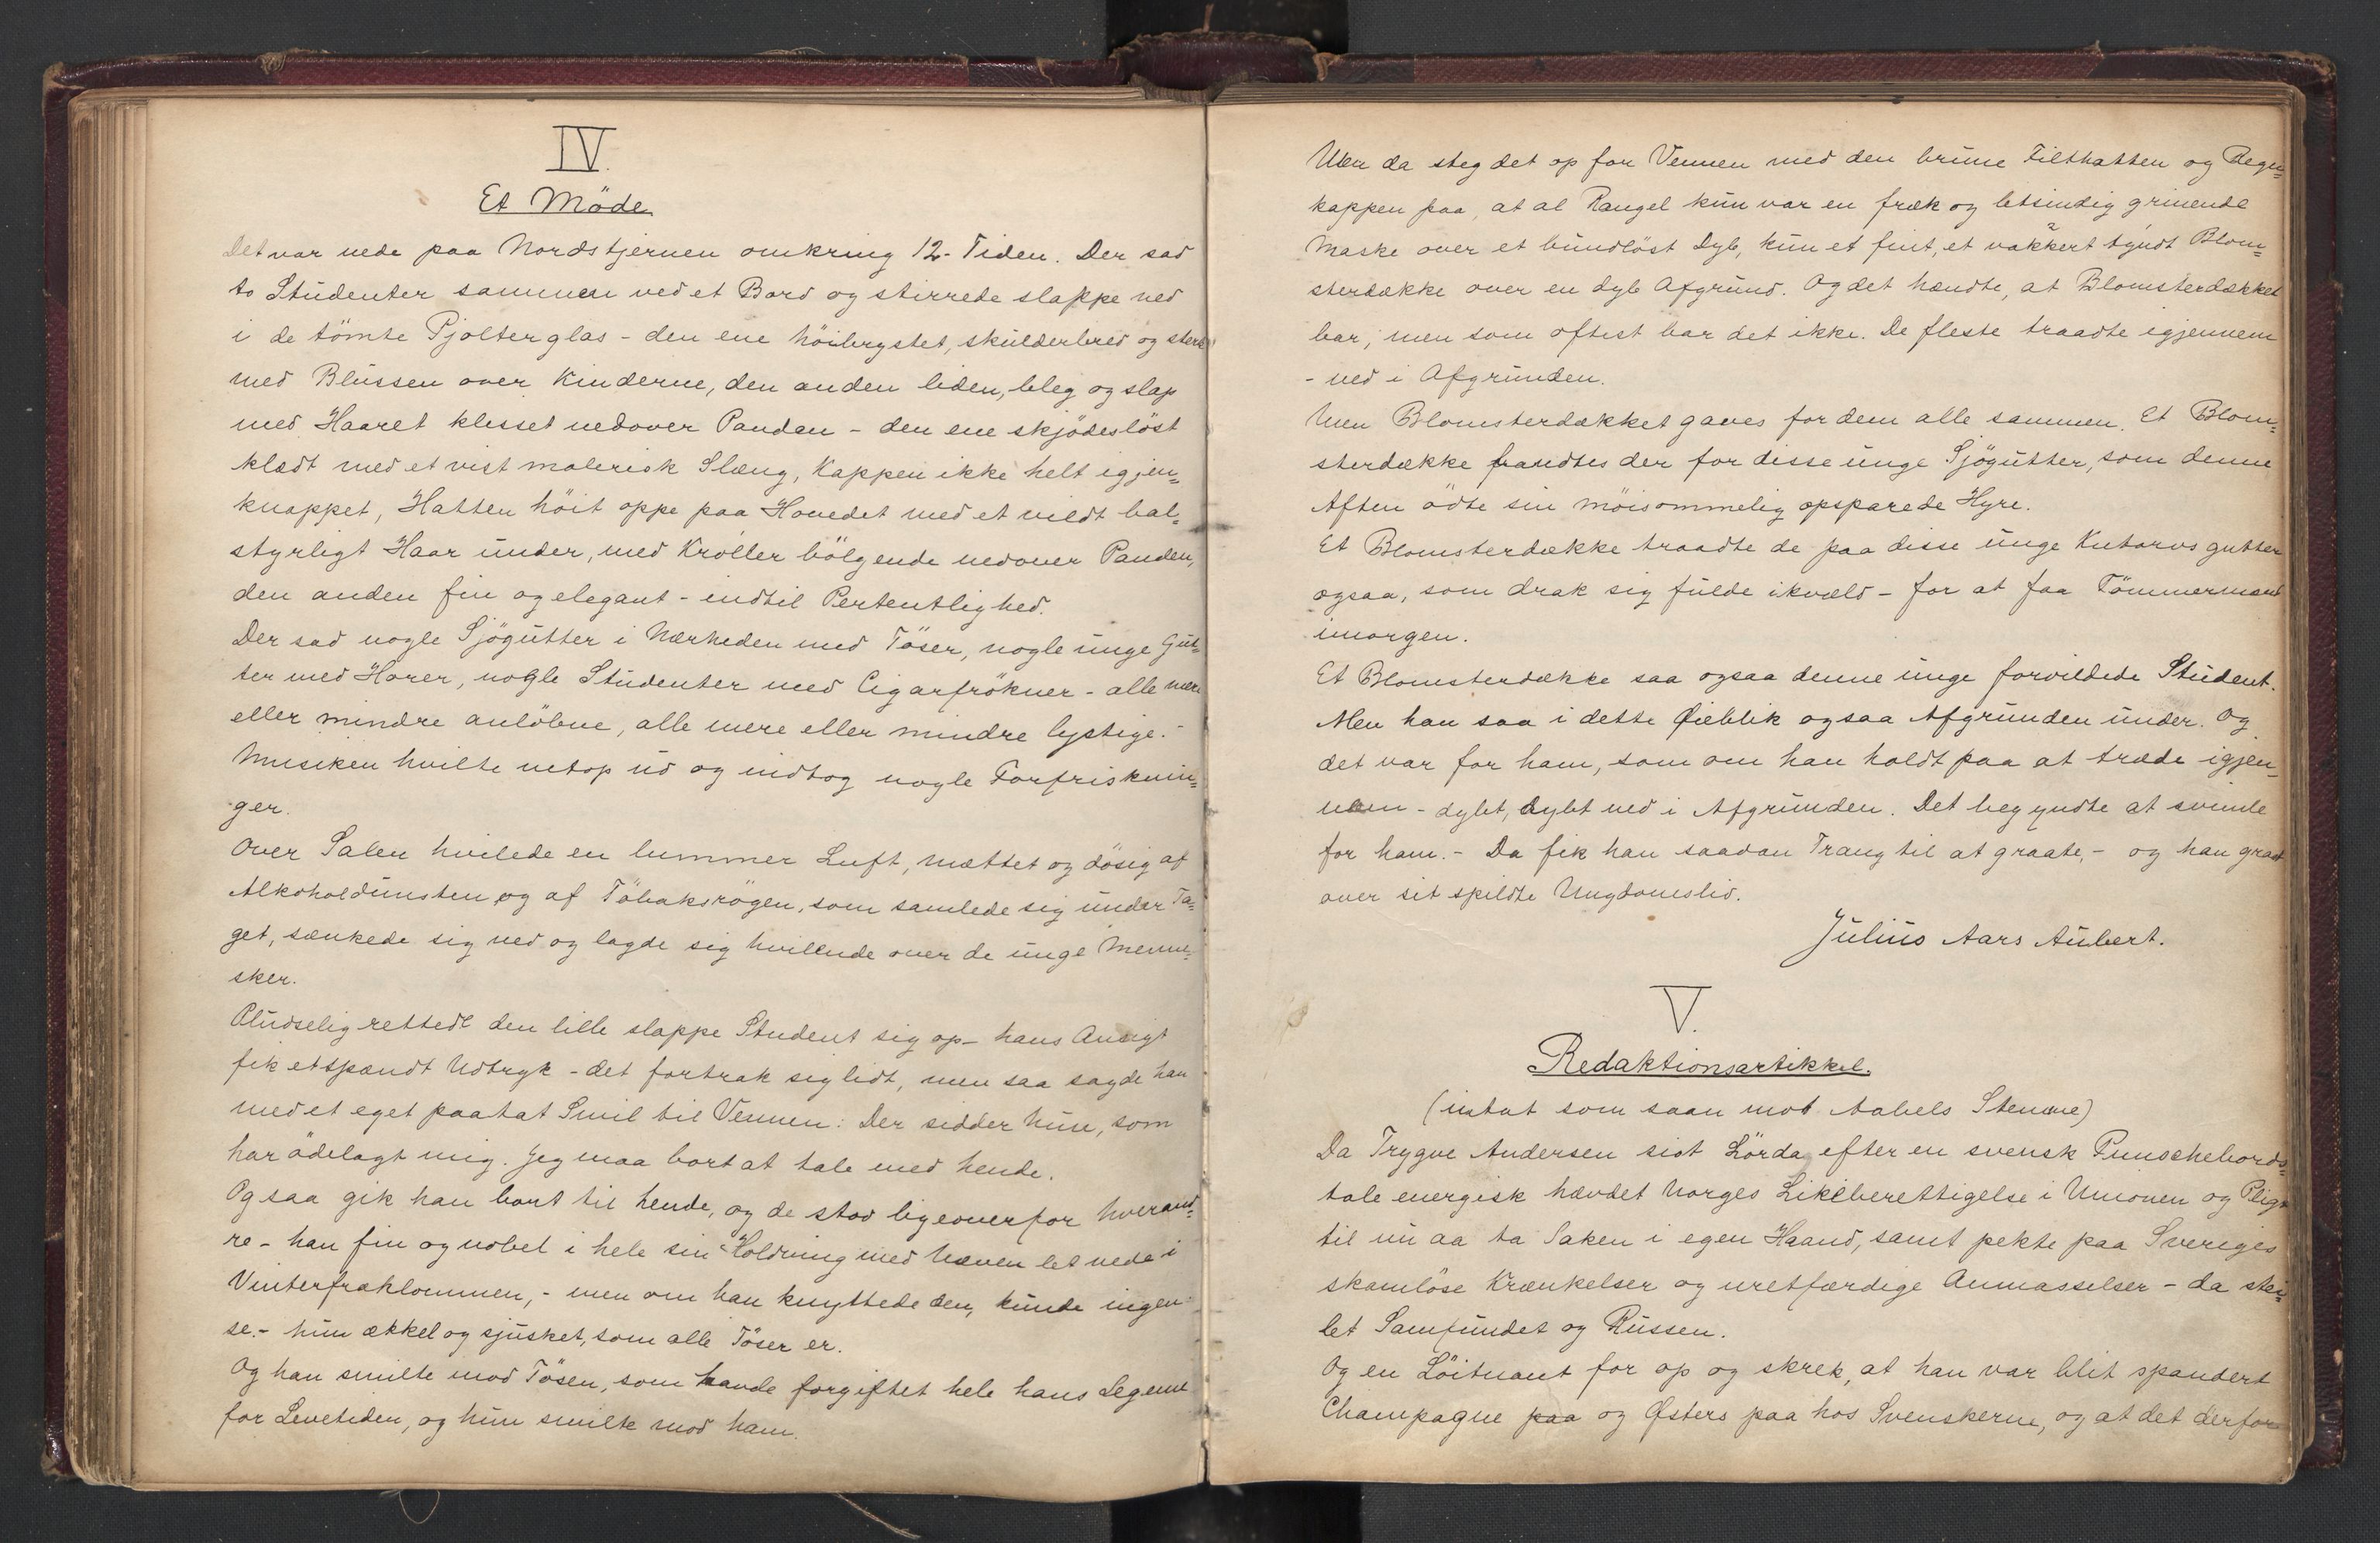 IV.
Et Möde
Det var nede paa Nordstjernen omkring 12-Tiden. Der sad
to Studenter sammen ved et Bord og stirrede slappe ned
i de tömte Pjolterglas - den ene höibrystet, skulderbred og sterk
med Blussen over Kinderne, den anden liden, bleg og slap
med Haaret klesset nedover Panden - den ene skjödeslöst
klædt med et vist malerisk Slæng, Kappen ikke helt igjen=
knappet, Hatten höit oppe paa Hovedet med et vildt bal=
styrligt Haar under, med Kröller bölgende nedover Panden,
den anden fin og elegant - indtil Pertentlighed.
Der sad nogle Sjögutter i Nærheden med Töser, nogle unge Gut=
ter med Horer, nogle Studenter med Cigarfrökner - alle mere
eller mindre anlöbne, alle mere eller mindre lystige.-
Musiken hvilte netop ud og indtog nogle Forfrisknin=
ger.
Over Salen hvilede en lummer Luft, mættet og dösig af
Alkoholdunsten og af Tobaksrögen, som samlede sig under Ta=
get, sænkede sig ned og lagde sig hvilende over de unge Menne=
sker.
Pludselig rettede den lille slappe Student sig op - hans Ansigt
fik et spændt Udtryk - det fortrak sig lidt, men saa sagde han
med et eget paatat Smil til Vennen: Der sidder hun, som
har ödelagt mig. Jeg maa bort at tale med hende.
Og saa gik han bort til hende, og de stod ligeoverfor hverand=
re - han fin og nobel i hele sin Holdning med Næven let nede i
Vinterfraklommen, - men om han knyttede den, kunde ingen
se. - hun ækkel og sjusket, som alle Töser er.
Og han smilte mod Tösen, som havde forgiftet hele hans Legeme
for Levetiden, og hun smilte mod ham.
Men da steg det op for Vennen med den brune Filthatten og Regn=
kappen paa, at al Rangel kun var en fræk og letsindig grinende
Maske over et bundlöst Dyb, kun et fint, et vakkert tyndt Blom=
sterdække over en dyb Afgrund. Og det hændte, at Blomsterdækket
bar, men som oftest bar det ikke. De fleste traadte igjennem
- ned i Afgrunden.
Men Blomsterdækket gaves for dem alle sammen. Et Blom=
sterdække fandtes der for disse unge Sjögutter, som denne
Aften ödte sin möisommelig opsparede Hyre.
Et Blomsterdække traadte de paa disse unge Kutorvsgutter
ogsaa, som drak sig fulde ikvæld - for at faa Tömmermænd
imorgen.
Et Blomsterdække saa ogsaa denne unge forvildede Student.
Men han saa i dette Øieblik ogsaa Afgrunden under. Og
det var for ham, som om han holdt paa at træde igjen=
nem - dybt, dybt ned i Afgrunden. Det begyndte at svimle
for ham. - Da fik han saadan Trang til at graate, - og han graat
over sit spildte Ungdomsliv.
Julius Aars Aubert.
V.
Redaktionsartikkel.
(intat som saan mot Aabels Stemme)
Da Trygve Andersen sist Lörda efter en svensk Punschebords=
tale energisk hævdet Norges Likeberettigelse i Unionen og Pligt
til nu aa ta Saken i egen Haand, samt pekte paa Sveriges
skamlöse Krænkelser og uretfærdige Anmasselser - da stei=
let Samfundet og Russen.
Og en Löitnant for op og skrek, at han var blit spandert
Champagne paa og Østers paa hos Svenskerne, og at det derfor